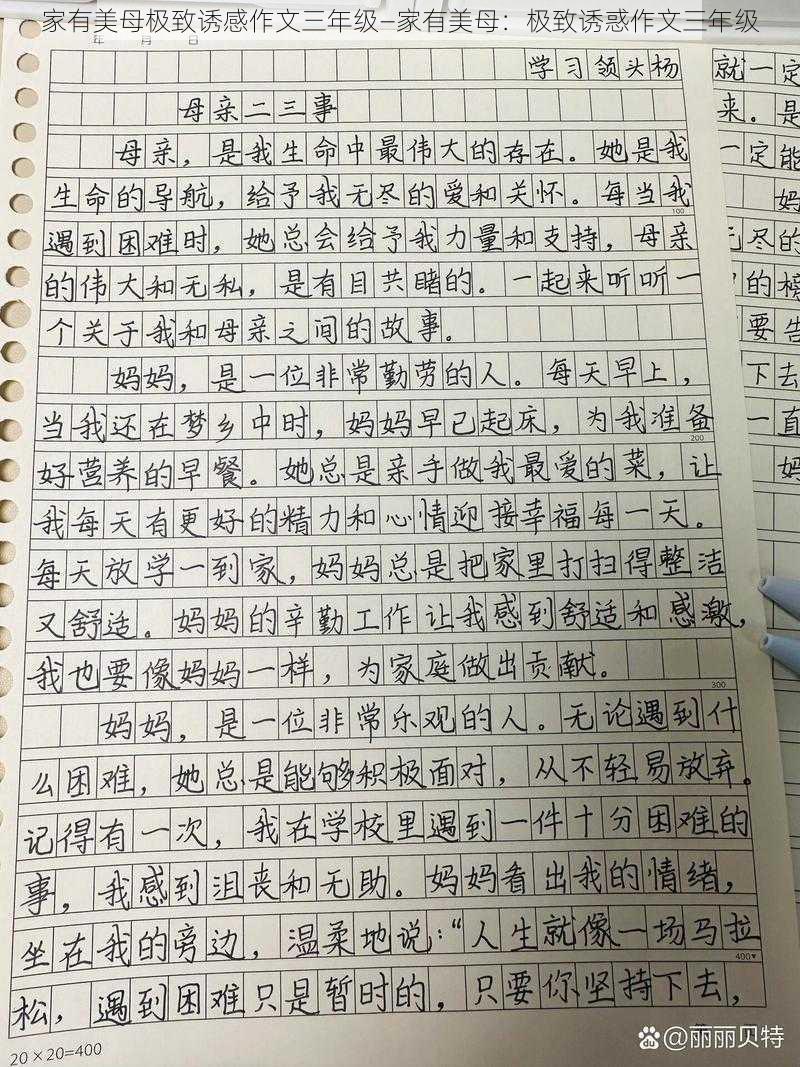 家有美母极致诱感作文三年级—家有美母：极致诱惑作文三年级
年 月 日
学习领头杨
母亲二三事
母亲，是我生命中最伟大的存在。她是我
生命的导航，给予我无尽的爱和关怀。每当我
100
遇到困难时，她总会给予我力量和支持，母亲
的伟大和无私，是有目共睹的。一起来听听一
个关于我和母亲之间的故事。
妈妈，是一位非常勤劳的人。每天早上，
当我还在梦乡中时，妈妈早已起床，为我准备
200
好营养的早餐。她总是亲手做我最爱的菜，让
我每天有更好的精力和心情迎接幸福每一天。
每天放学一到家，妈妈总是把家里打扫得整洁
又舒适。妈妈的辛勤工作让我感到舒适和感激，
我也要像妈妈一样，为家庭做出贡献。
300
妈妈，是一位非常乐观的人。无论遇到什
么困难，她总是能够积极面对，从不轻易放弃。
记得有一次，我在学校里遇到一件十分困难的
事，我感到沮丧和无助。妈妈看出我的情绪，
坐在我的旁边，温柔地说：“人生就像一场马拉
400
松，遇到困难只是暂时的，只要你坚持下去，
20×20=400
就一定
来。是
一定能
妈
无尽的
的榜
要告
下去
一直
妈
百度@丽丽贝特